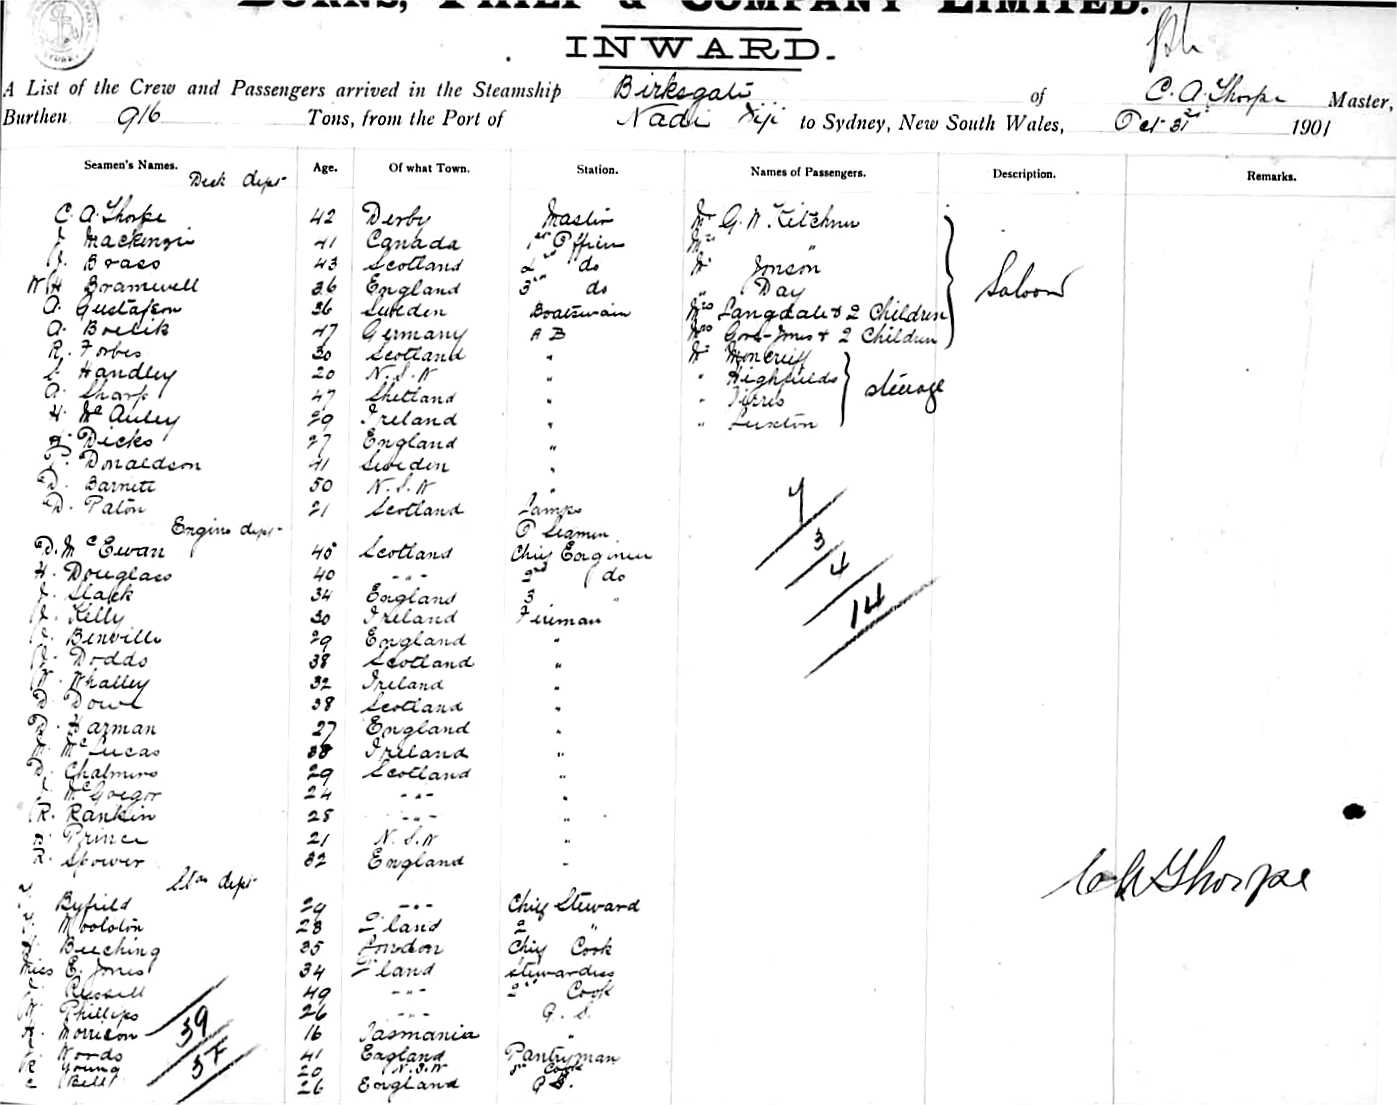 BURNS, PHILP & COMPANY LIMITED.
INWARD.
A List of the Crew and Passengers arrived in the Steamship Birksgate of C. A. Thorpe Master,
Burthen 916 Tons, from the Port of Nadi Fiji to Sydney, New South Wales, Oct 31st 1901
Seamen's Names. Age. Of what Town. Station. Names of Passengers. Description. Remarks.
Deck dept
C. A. Thorpe 42 Derby Master Mr G. W. Kitchner
J. Mackenzie 41 Canada 1st Officer Mrs "
J. Brass 43 Scotland 2nd do Mr Jonson Saloon
W H Bramwell 36 England 3rd do " Day
A. Gustafson 36 Sweden Boatswain Mrs Langdale & 2 Children
A. Boelik 47 Germany A B Mrs -Jones & 2 Children
R. Forbes 30 Scotland " Mr Moncrieff
Handley 20 N.S.W " " Highfields steerage
A. Sharp 47 Shetland " "
H. McAuley 29 Ireland " " Luxton
Dicks 27 England "
Donaldson 41 Sweden "
D. Barnett 50 N.S.W "
D. Paton 21 Scotland Lamps
Engine dept O Seamen
D. McEwan 40 Scotland Chief Engineer
H. Douglass 40 -"- 2nd do
J. Slack 34 England 3 "
J. Kelly 30 Ireland Fireman
J. Benville 29 England "
J. Dodds 38 Scotland "
W. Whalley 32 Ireland "
D. Dowl 38 Scotland "
D. Harman 27 England "
M. McLucas 38 Ireland "
D. Chalmers 29 Scotland "
J. McGregor 24 -"- "
R. Rankin 28 -"- "
Prince 21 N.S.W "
R. Spower 32 England "
Stwd dept
Byfield 29 -"- Chief Steward
28 E'land 2 "
H. Beeching 35 London Chief Cook
Miss E. Jones 34 E'land Stewardess
Russell 49 -"- 2nd Cook
W. Phillips 26 -"- G. S.
A. Morrison 16 Tasmania "
Words 41 England Pantryman
R Young 20 N.S.W 3r Cook
C Bell 26 England G S.
7
3
4
14
39
37
C A Thorpe